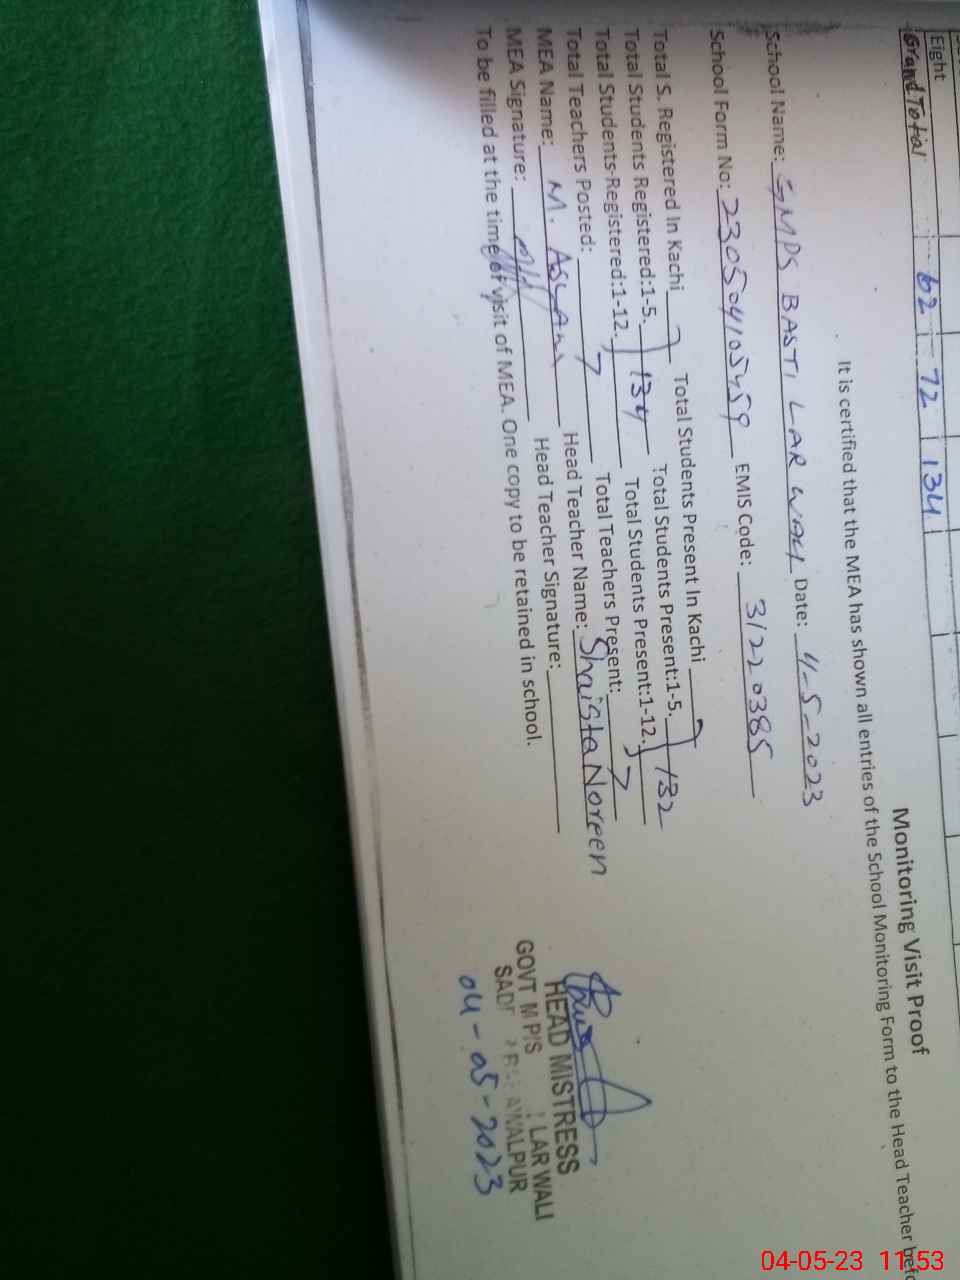 Eight
Grand Total 62 72 134
Monitoring Visit Proof
It is certified that the MEA has shown all entries of the School Monitoring Form to the Head Teacher befo
School Name: GMPS BASTI LAR WALI Date: 4-5-2023
School Form No: 230504105459 EMIS Code: 31220385
Total S. Registered In Kachi Total Students Present In Kachi
Total Students Registered:1-5. 134 Total Students Present:1-5. 132
Total Students Registered:1-12. Total Students Present:1-12.
Total Teachers Posted: 7 Total Teachers Present: 7
MEA Name: M. ASLAM Head Teacher Name: Shaista Noreen
MEA Signature: Head Teacher Signature:
To be filled at the time of visit of MEA. One copy to be retained in school.
HEAD MISTRESS
GOVT M P/S LAR WALI
SADR BAHAWALPUR
04-05-2023
04-05-23 11:53